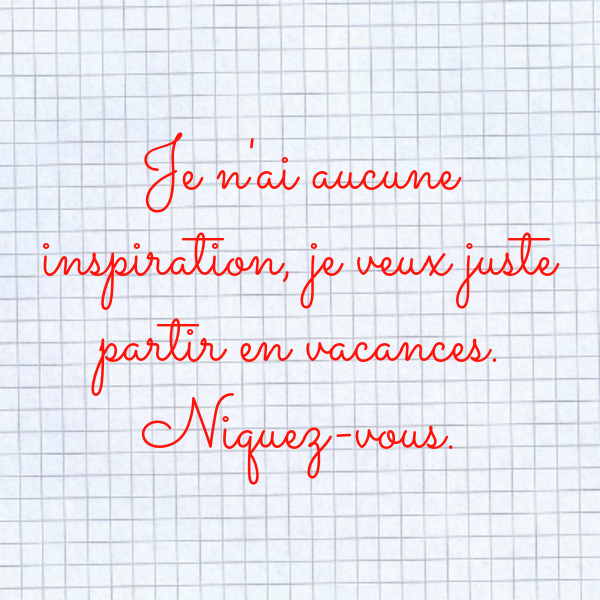 Je n'ai aucune
inspiration, je veux juste
partir en vacances.
Niquez-vous.